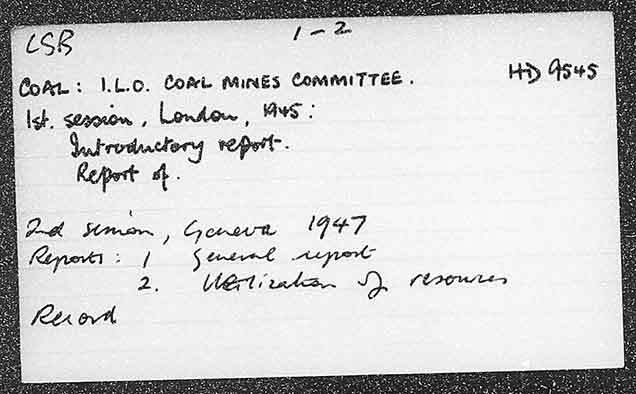 LSB
1-2
COAL: I.L.O. COAL MINES COMMITTEE.
HD 9545
1st. session, London, 1945:
Introductory report.
Report of.
2nd session, Geneva 1947
Reports: 1 General report
2. Utilization of resources
Record